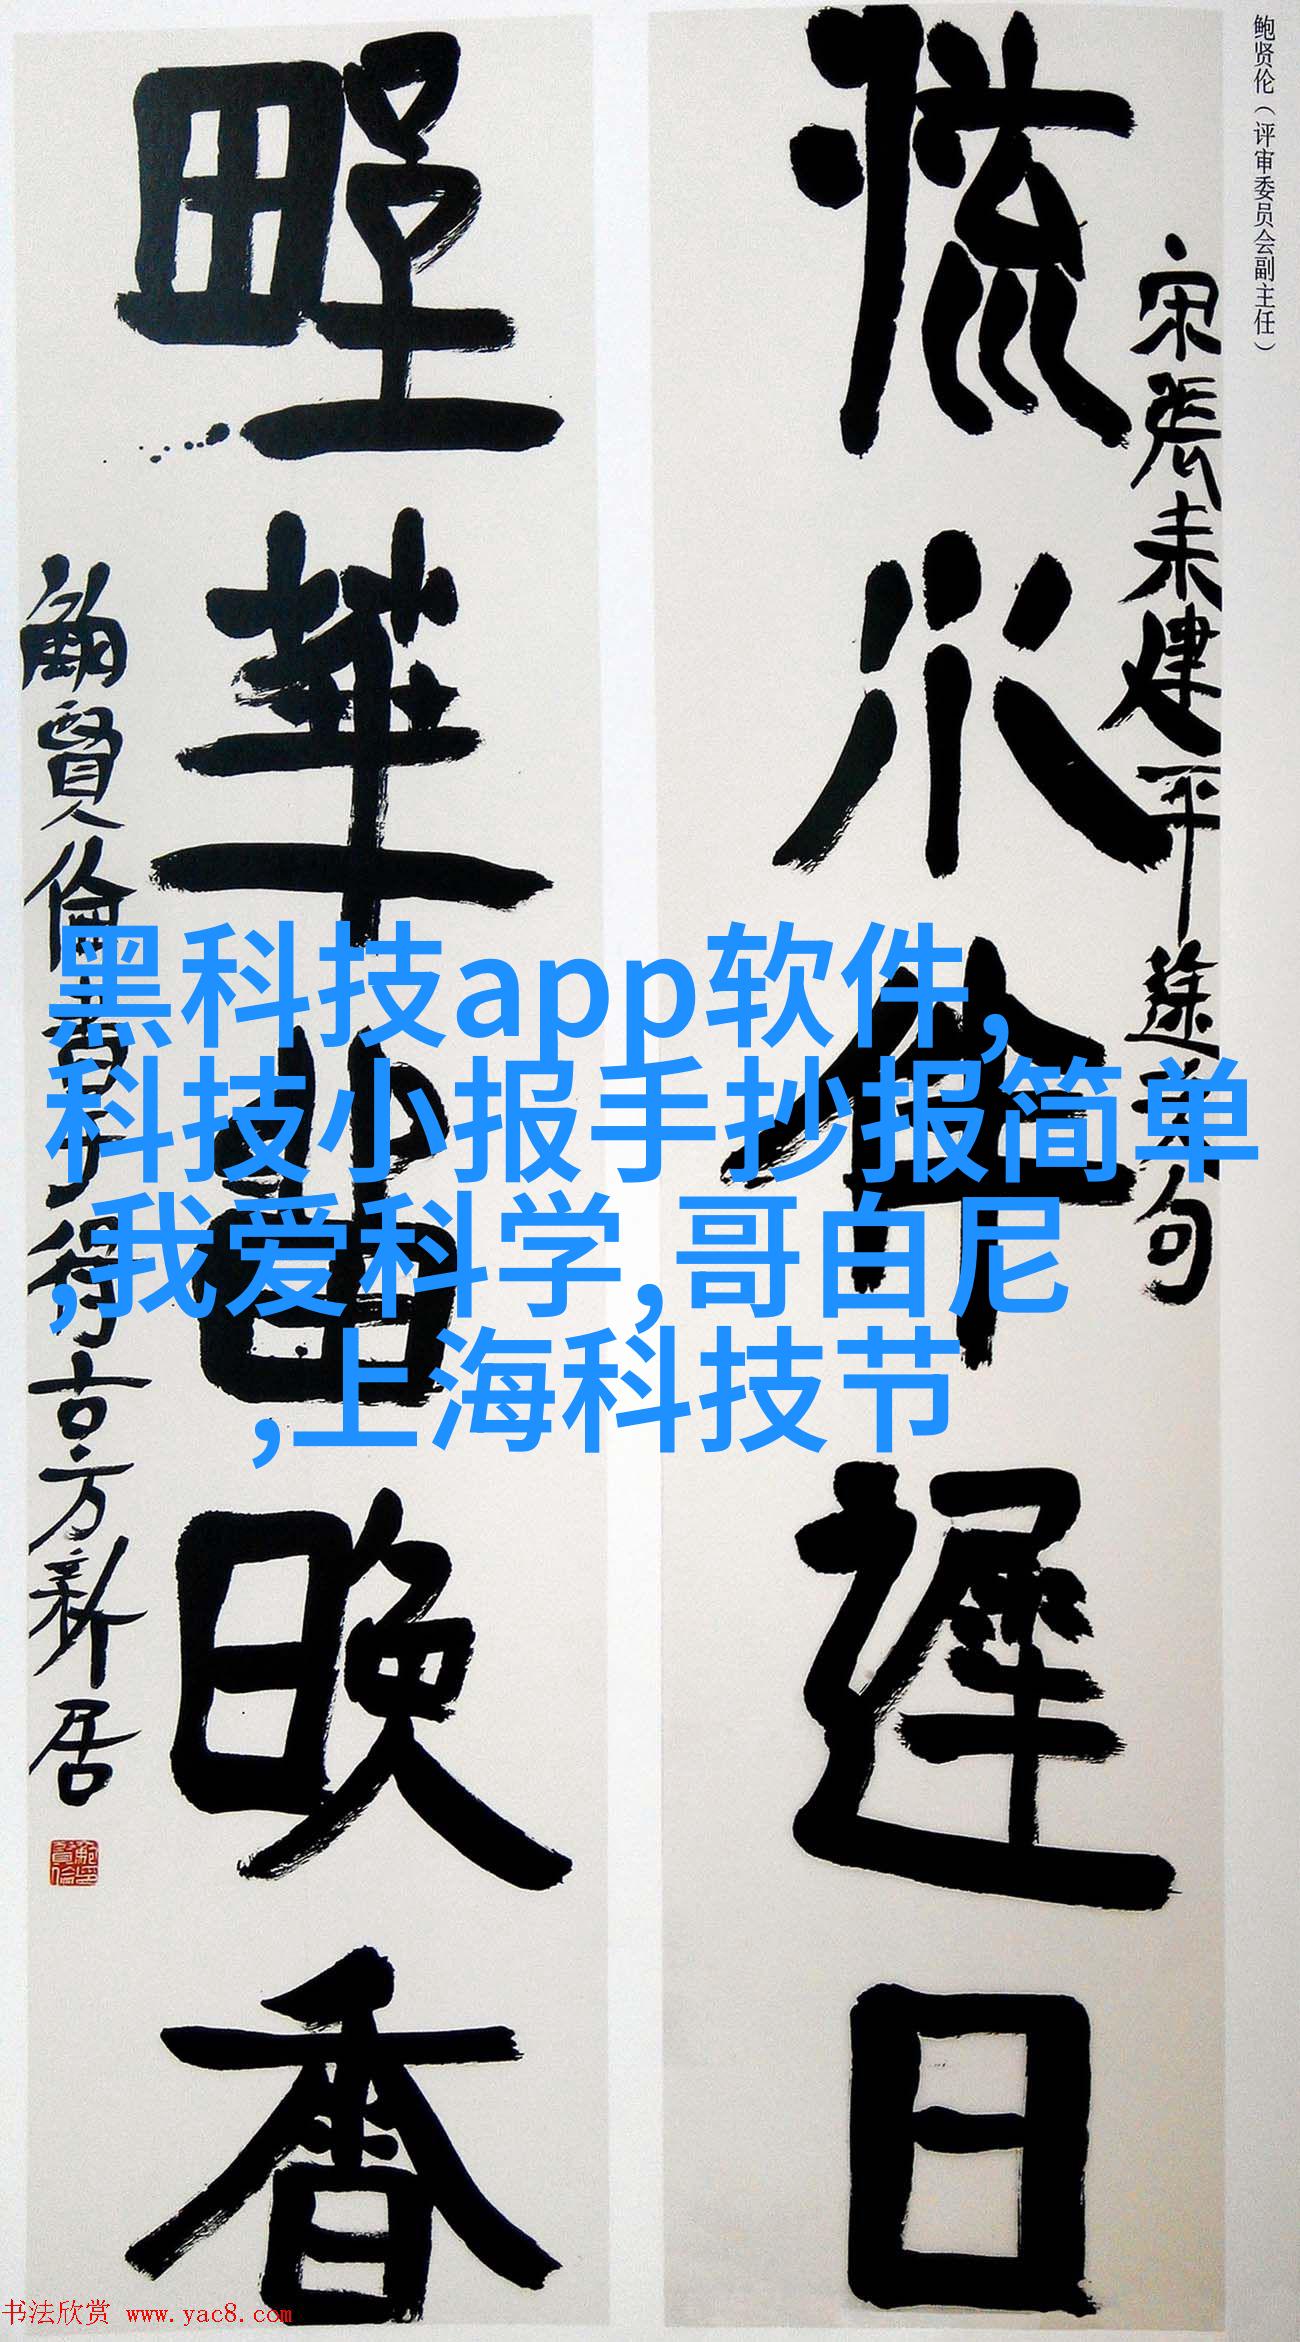 鲍贤伦（评审委员会副主任）
宋張耒建平途次句
流水伴遲日
野華留晚香
鮑賢倫書于得古方新居
黑科技app软件,
科技小报手抄报简单
,我爱科学,哥白尼
,上海科技节
书法欣赏 www.yac8.com